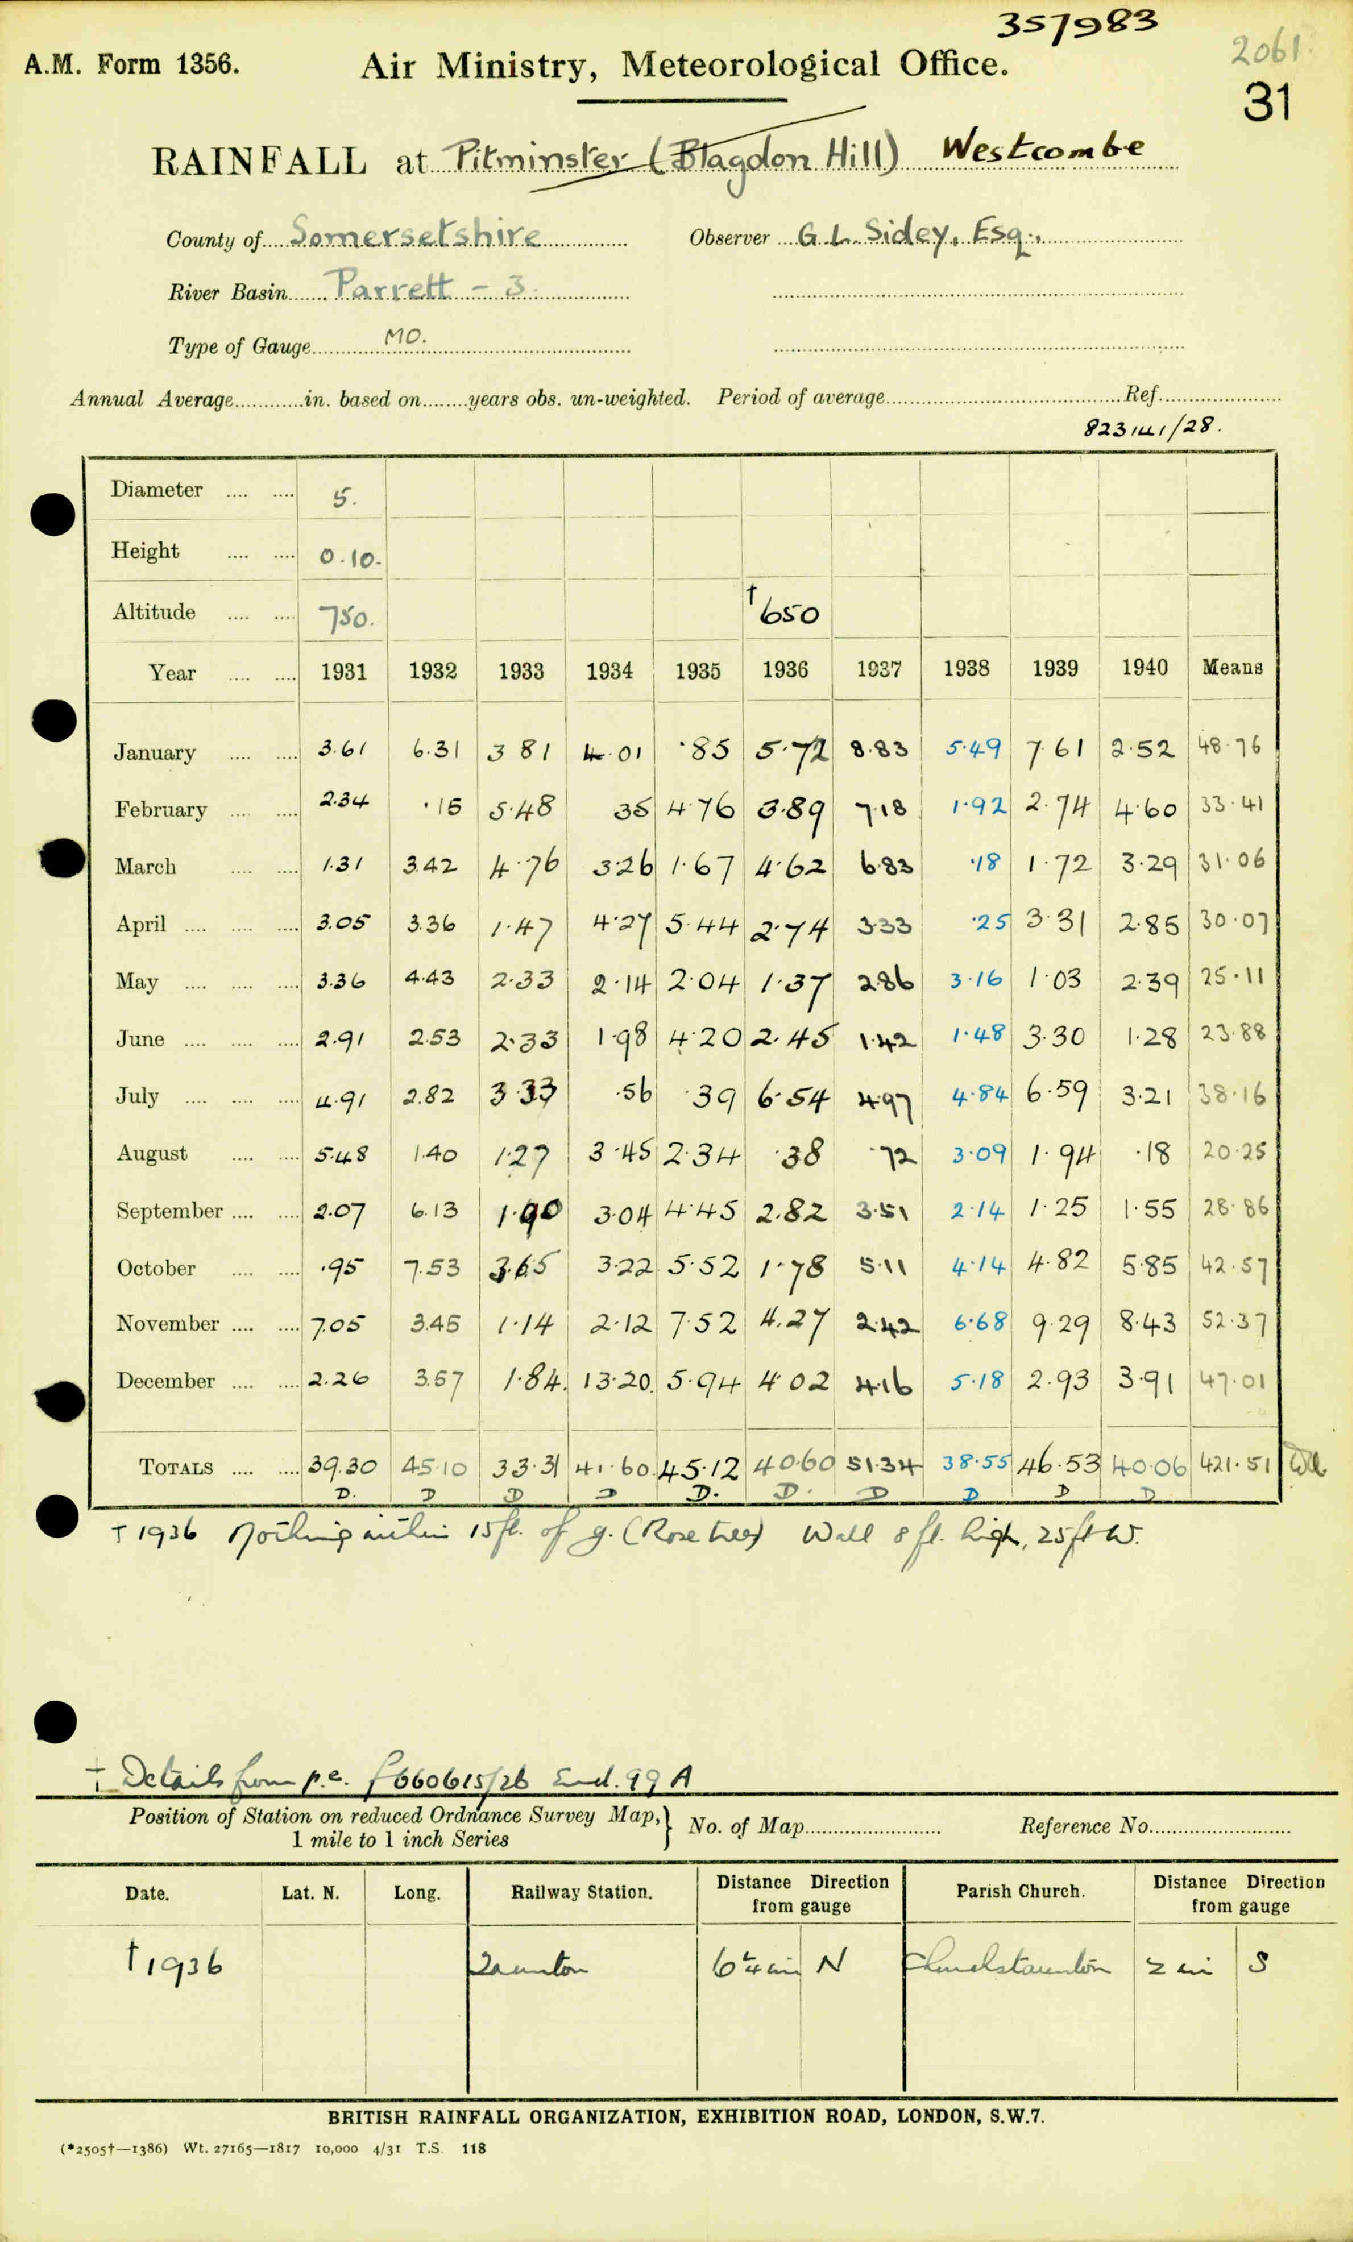 357983
A.M. Form 1356. Air Ministry, Meteorological Office. 2061
31
RAINFALL at Pitminster (Blagdon Hill) Westcombe
County of Somersetshire Observer G.L. Sidey, Esq.,
River Basin Parrett - 3.
Type of Gauge MO.
Annual Average in. based on years obs. un-weighted. Period of average Ref.
823141/28.
Diameter 5.
Height 0.10.
Altitude 750. †650
Year 1931 1932 1933 1934 1935 1936 1937 1938 1939 1940 Means
January 3.61 6.31 3 81 4.01 .85 5.72 8.83 5.49 7.61 2.52 48.76
February 2.34 .15 5.48 35 4.76 3.89 7.18 1.92 2.74 4.60 33.41
March 1.31 3.42 4.76 3.26 1.67 4.62 6.83 .18 1.72 3.29 31.06
April 3.05 3.36 1.47 4.27 5.44 2.74 3.33 .25 3.31 2.85 30.07
May 3.36 4.43 2.33 2.14 2.04 1.37 2.86 3.16 1.03 2.39 25.11
June 2.91 2.53 2.33 1.98 4.20 2.45 1.42 1.48 3.30 1.28 23.88
July 4.91 2.82 3.33 .56 .39 6.54 4.97 4.84 6.59 3.21 38.16
August 5.48 1.40 1.27 3.45 2.34 .38 .72 3.09 1.94 .18 20.25
September 2.07 6.13 1.90 3.04 4.45 2.82 3.51 2.14 1.25 1.55 28.86
October .95 7.53 3.65 3.22 5.52 1.78 5.11 4.14 4.82 5.85 42.57
November 7.05 3.45 1.14 2.12 7.52 4.27 2.42 6.68 9.29 8.43 52.37
December 2.26 3.57 1.84. 13.20. 5.94 4.02 4.16 5.18 2.93 3.91 47.01
TOTALS 39.30 45.10 33.31 41.60 45.12 40.60 51.34 38.55 46.53 40.06 421.51
D. D D D D. D. D D D D
† 1936 Nothing within 15ft. of g. (Rose trees) Wall 8 ft. high, 25ft W.
† Details from p.c. f660615/26 Encl. 99 A
Position of Station on reduced Ordnance Survey Map,} No. of Map Reference No.
1 mile to 1 inch Series
Date. Lat. N. Long. Railway Station. Distance Direction from gauge Parish Church. Distance Direction from gauge
†1936 Taunton 6¼ mi N Churchstaunton 2 mi S
BRITISH RAINFALL ORGANIZATION, EXHIBITION ROAD, LONDON, S.W.7.
(*2505†—1386) Wt. 27165—1817 10,000 4/31 T.S. 118